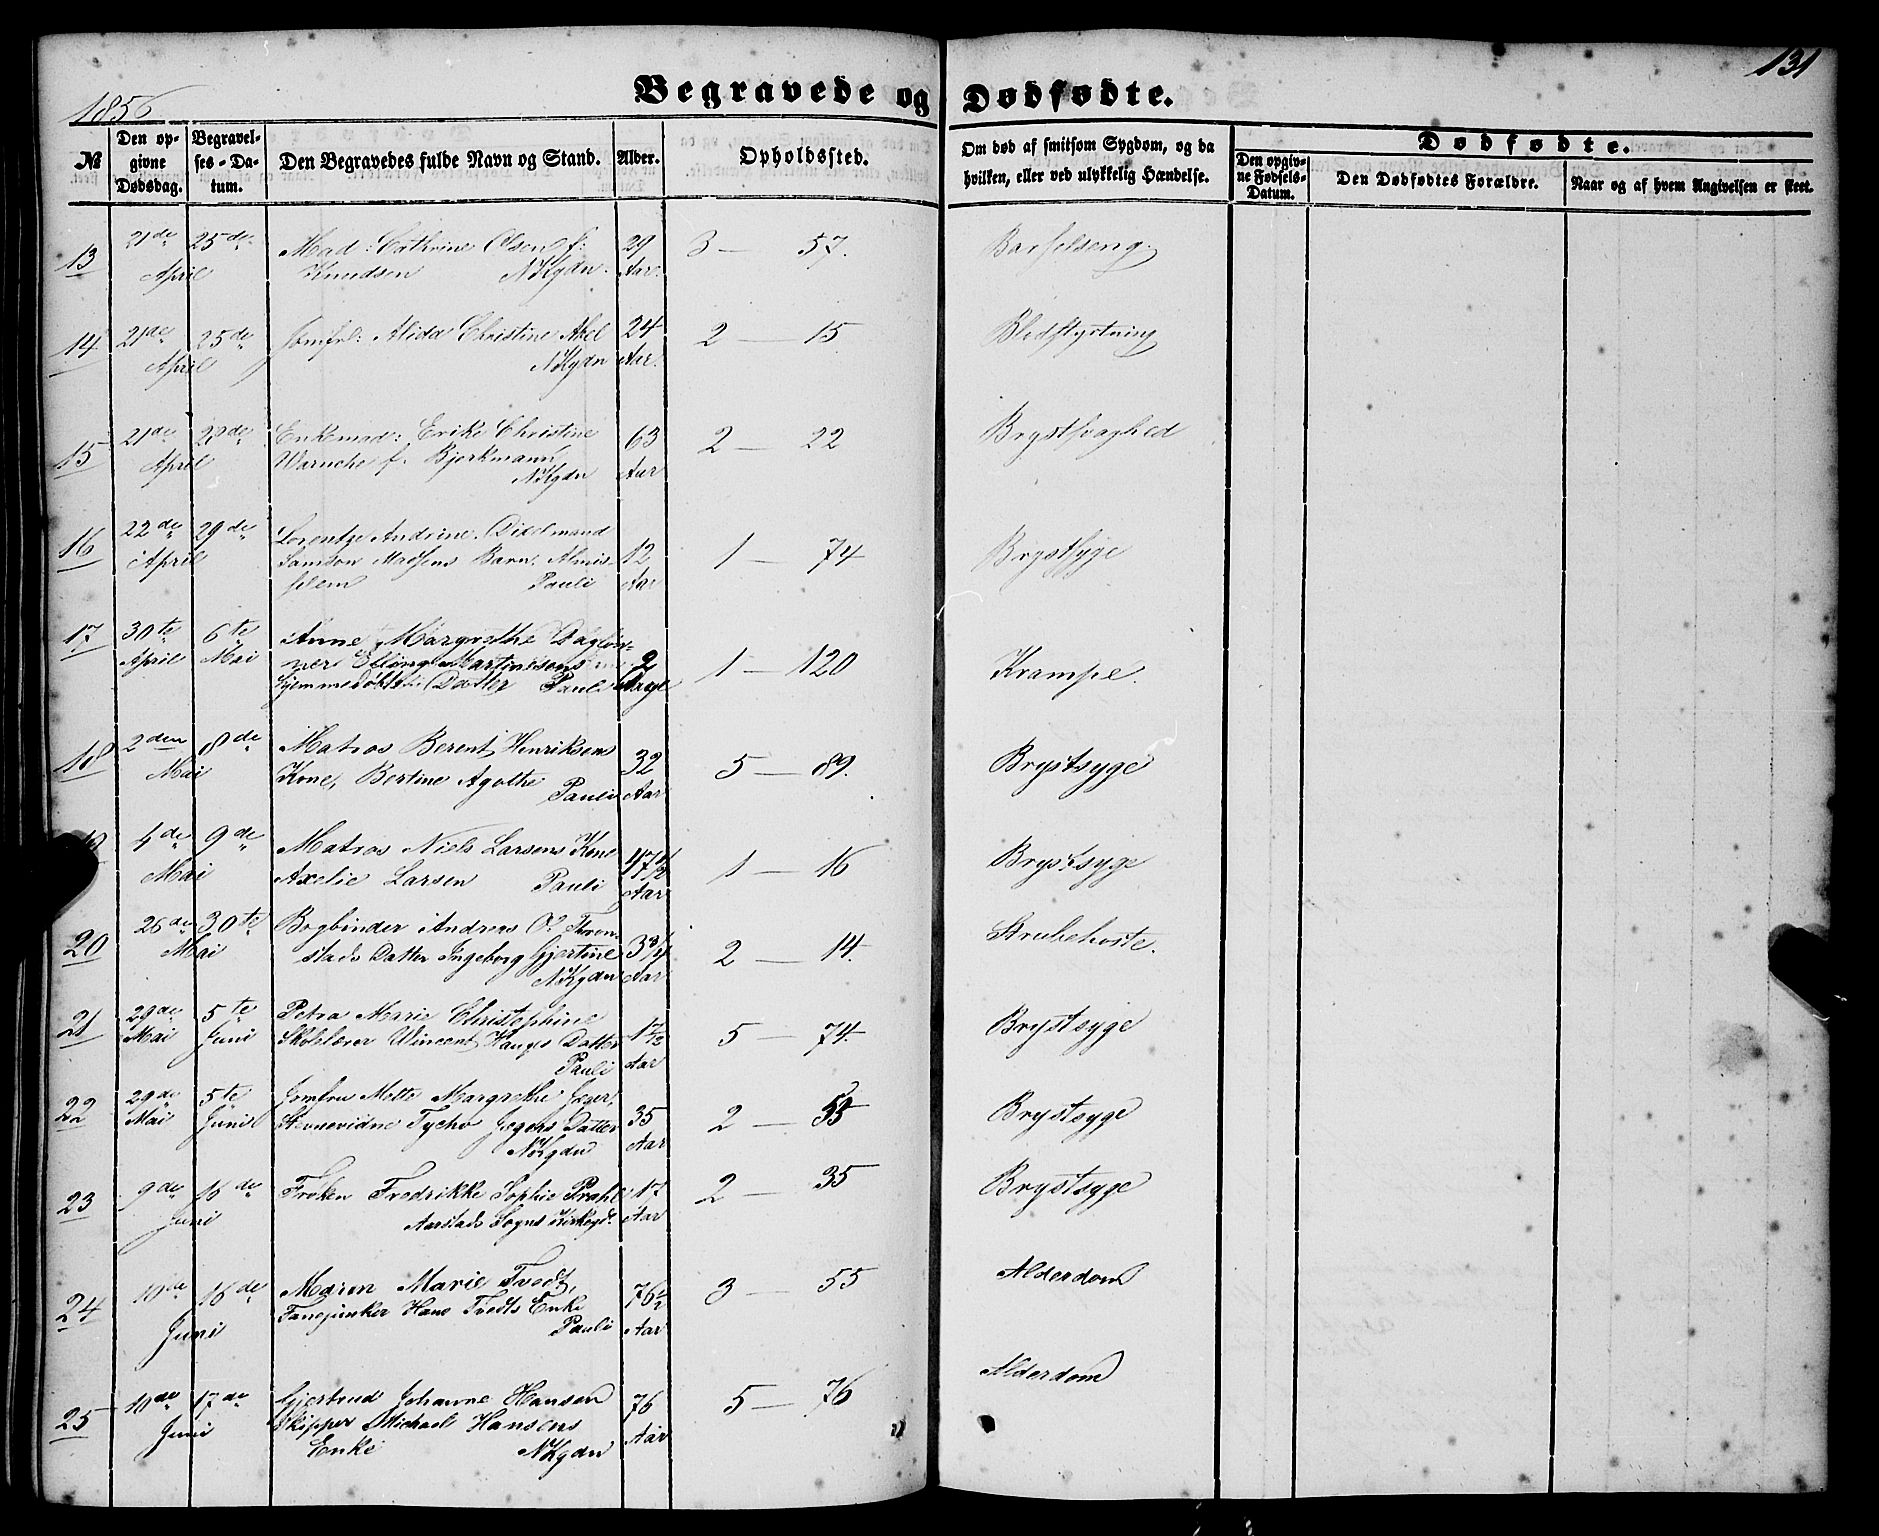 131
1856
Begravede og Dødfødte.
№
Den op-
givne
Dødsdag.
Begravel-
ses-Da-
tum.
Den Begravedes fulde Navn og Stand.
Alder.
Opholdssted.
Om død af smitsom Sygdom, og da
hvilken, eller ved ulykkelig Hændelse.
Dødfødte.
Den opgiv-
ne Fødsels-
Datum.
Den Dødfødtes Forældre.
Naar og af hvem Angivelsen er skeet.
13 21de 25de Mad: Cathrine Olsen f: 29 3 — 57. Barselseng.
April Knudsen NKgdn. Aar.
14 21de 25de Jomfr: Alida Christine Abel 24 2 — 15 Blodstyrtning
April NKgdn Aar.
15 21de 28de Enkemad: Erike Christine 63 2 — 22 Brystsvaghed
April Warncke f. Bjerkmann, Aar
NKgdn
16 22de 29de Lorentze Andrine
April Samson Madsens Barn. Almis- 12 1 — 74 Brystsyge
silem Pauli Aar
17 30te 6te Anne Margrethe Dagløn-
April Mai ner Martinssens 2 1 — 120 Krampe.
hjemmedøbte Datter Pauli Dage
18 2den 8de Matros Berent Henriksens 32 5 — 89. Brystsyge
Mai Kone, Bertine Agathe Aar
Pauli
19 4de 9de Matros Niels Larsens Kone 47 1/2 1 — 16 Brystsyge
Mai Axelie Larsen Pauli Aar
20 26de 30te Bogbinder Andreas O. Thron-
Mai stads Datter Ingeborg Gjertine 3 3/4 2 — 14. Strubehoste.
NKgdn Aar
21 29de 5te Petra Marie Christophine
Mai Juni Skolelærer Wincent Hauges Datter 17 1/2 5 — 74. Brystsyge
Pauli Aar
22 29de 5te Jomfru Mette Margrethe Jæger,
Mai Juni Stevnevidne Tycho Jægers Datter 35 2 — 55 Brystsyge
NKgdn Aar
23 9de 16de Frøken Fredrikke Sophie Prahl 17 2 — 35 Brystsyge
Juni Aarstads Sogns Kirkegd. Aar
24 10de 16de Maren Marie Tvedt, 76 1/2 3 — 55 Alderdom
Juni Fanejunker Hans Tvedts Enke Aar
Pauli
25 10de 17de Gjertrud Johanne Hansen 76 5 — 76 Alderdom
Juni Skipper Michael Hansens Aar
Enke NKgdn